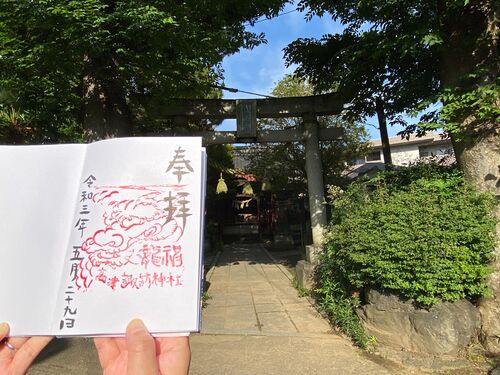 奉拝
龍福
高津諏訪神社
令和三年五月二十九日